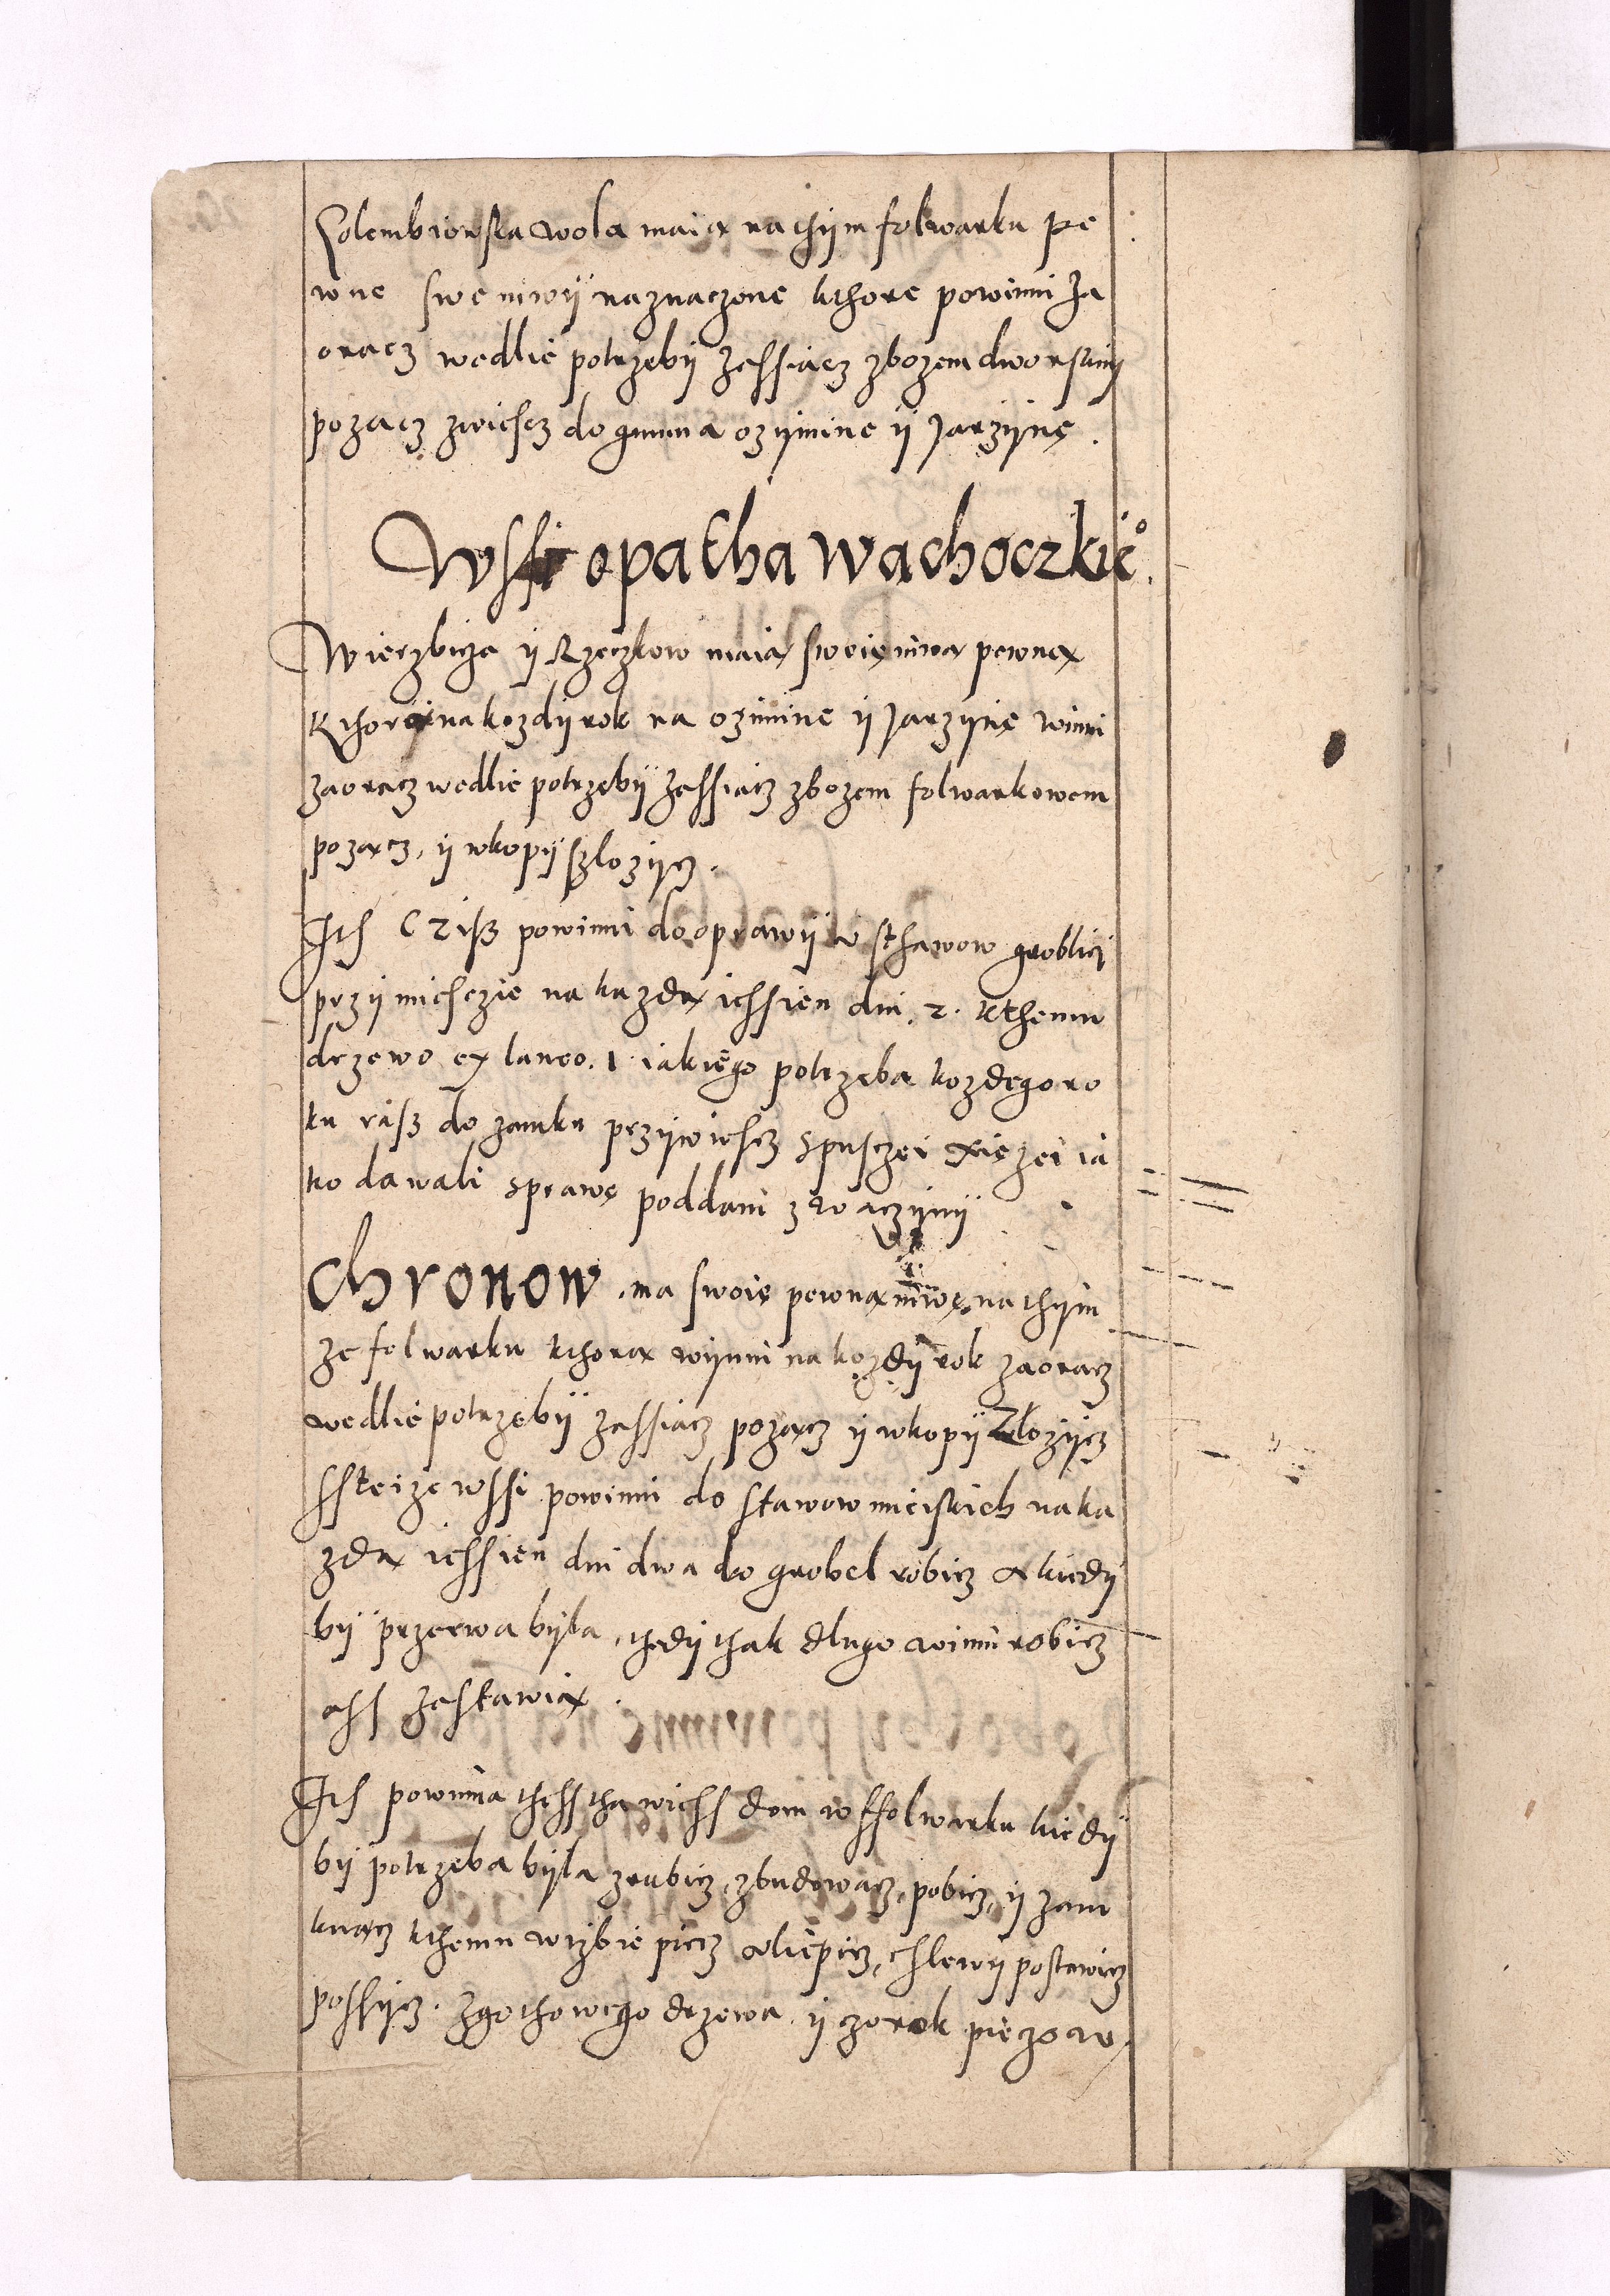 Golembiowska wola maią na thijm folwarku pe
wne swe niwÿ naznaczone kthore powinni za
oracz wedlie potrzebÿ zassiacz zbozem dworskim
pozącz zwiescz do gumna ozijmine ij Jarzijnę.
Wssi opatha wachoczkie°.
Wierzbicza ij Rzeczkow maią swoię niwą pewną
kthorą na kozdij rok na oziminę ij Jarzijnę winni
zaoracz wedlie potrzebÿ zassiacz zbozem folwarkowem
pozącz, ij wkopÿ szlozijcz.
Itē Ciż powinni do oprawÿ v sthawow groblicj
przij miesczie na kazdą iessien dni. 2. kthemu
drzewo ex laneo. 1. iakiego potrzeba kozdego ro
ku raß do zamku przijwiescz s pusczei xięzei ia
ko dawali sprawę poddani z ro aczijnij
Chronow. ma swoię pewną niwę na thijm
ze folwarku kthorą wijnni na kozdÿ rok zaoracz
wedlie potrzebÿ zassiacz pozącz ij wkopÿ zlozijcz
Ssteize wssi powinni do stawow mieiskich na ka
zdą iessien dni dwa do grobel robicz a kiedÿ
bÿ przerwa bÿla, thedÿ thak dlugo winni robicz
ass zastawią.
Itē powinna thess tha wiess dom w ffolwarku kiedÿ
bÿ potrzeba bÿla zrubicz, zbudowacz, pobicz, ij zam
knącz kthemu wizbie piecz vliepicz, chlewÿ postawicz
possijcz. Zgothowego drzewa ij zorok pięczow.